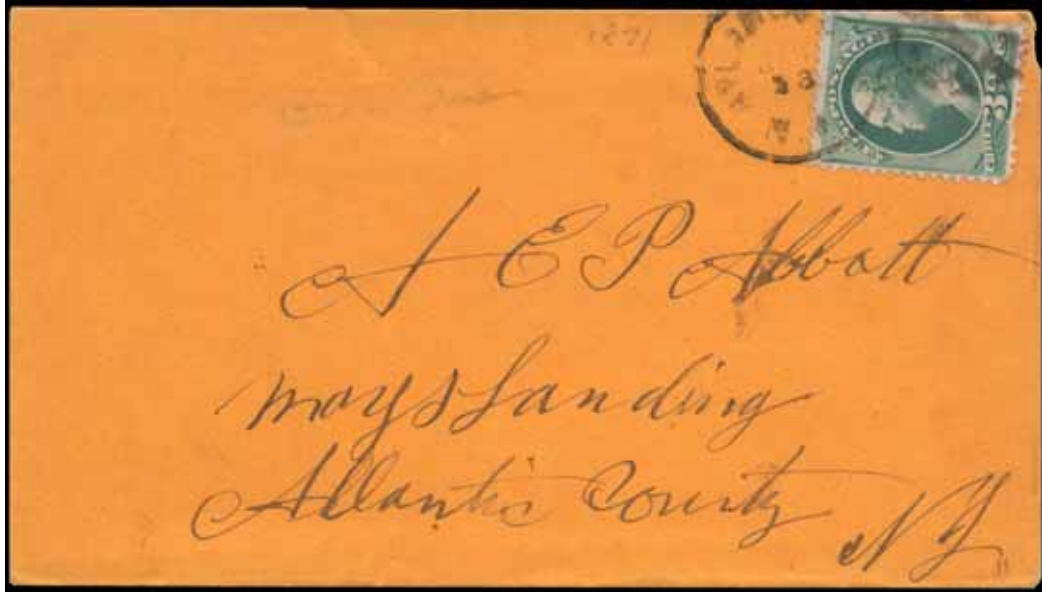 E P Abbott
mays Landing
Atlantic County
N J